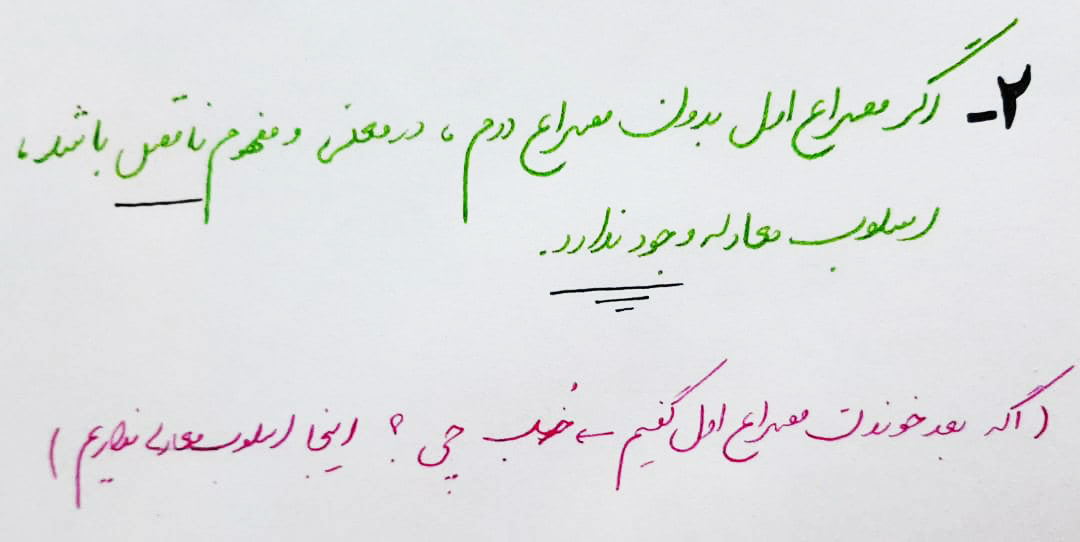 ۲- اگر مصراع اول بدون مصراع دوم، در معنی و مفهوم ناقص باشد،
اسلوب معادله وجود ندارد.
(اگه بعد خوندن مصراع اول گفتیم ← خُب چی؟ اینجا اسلوب معادله نداریم)